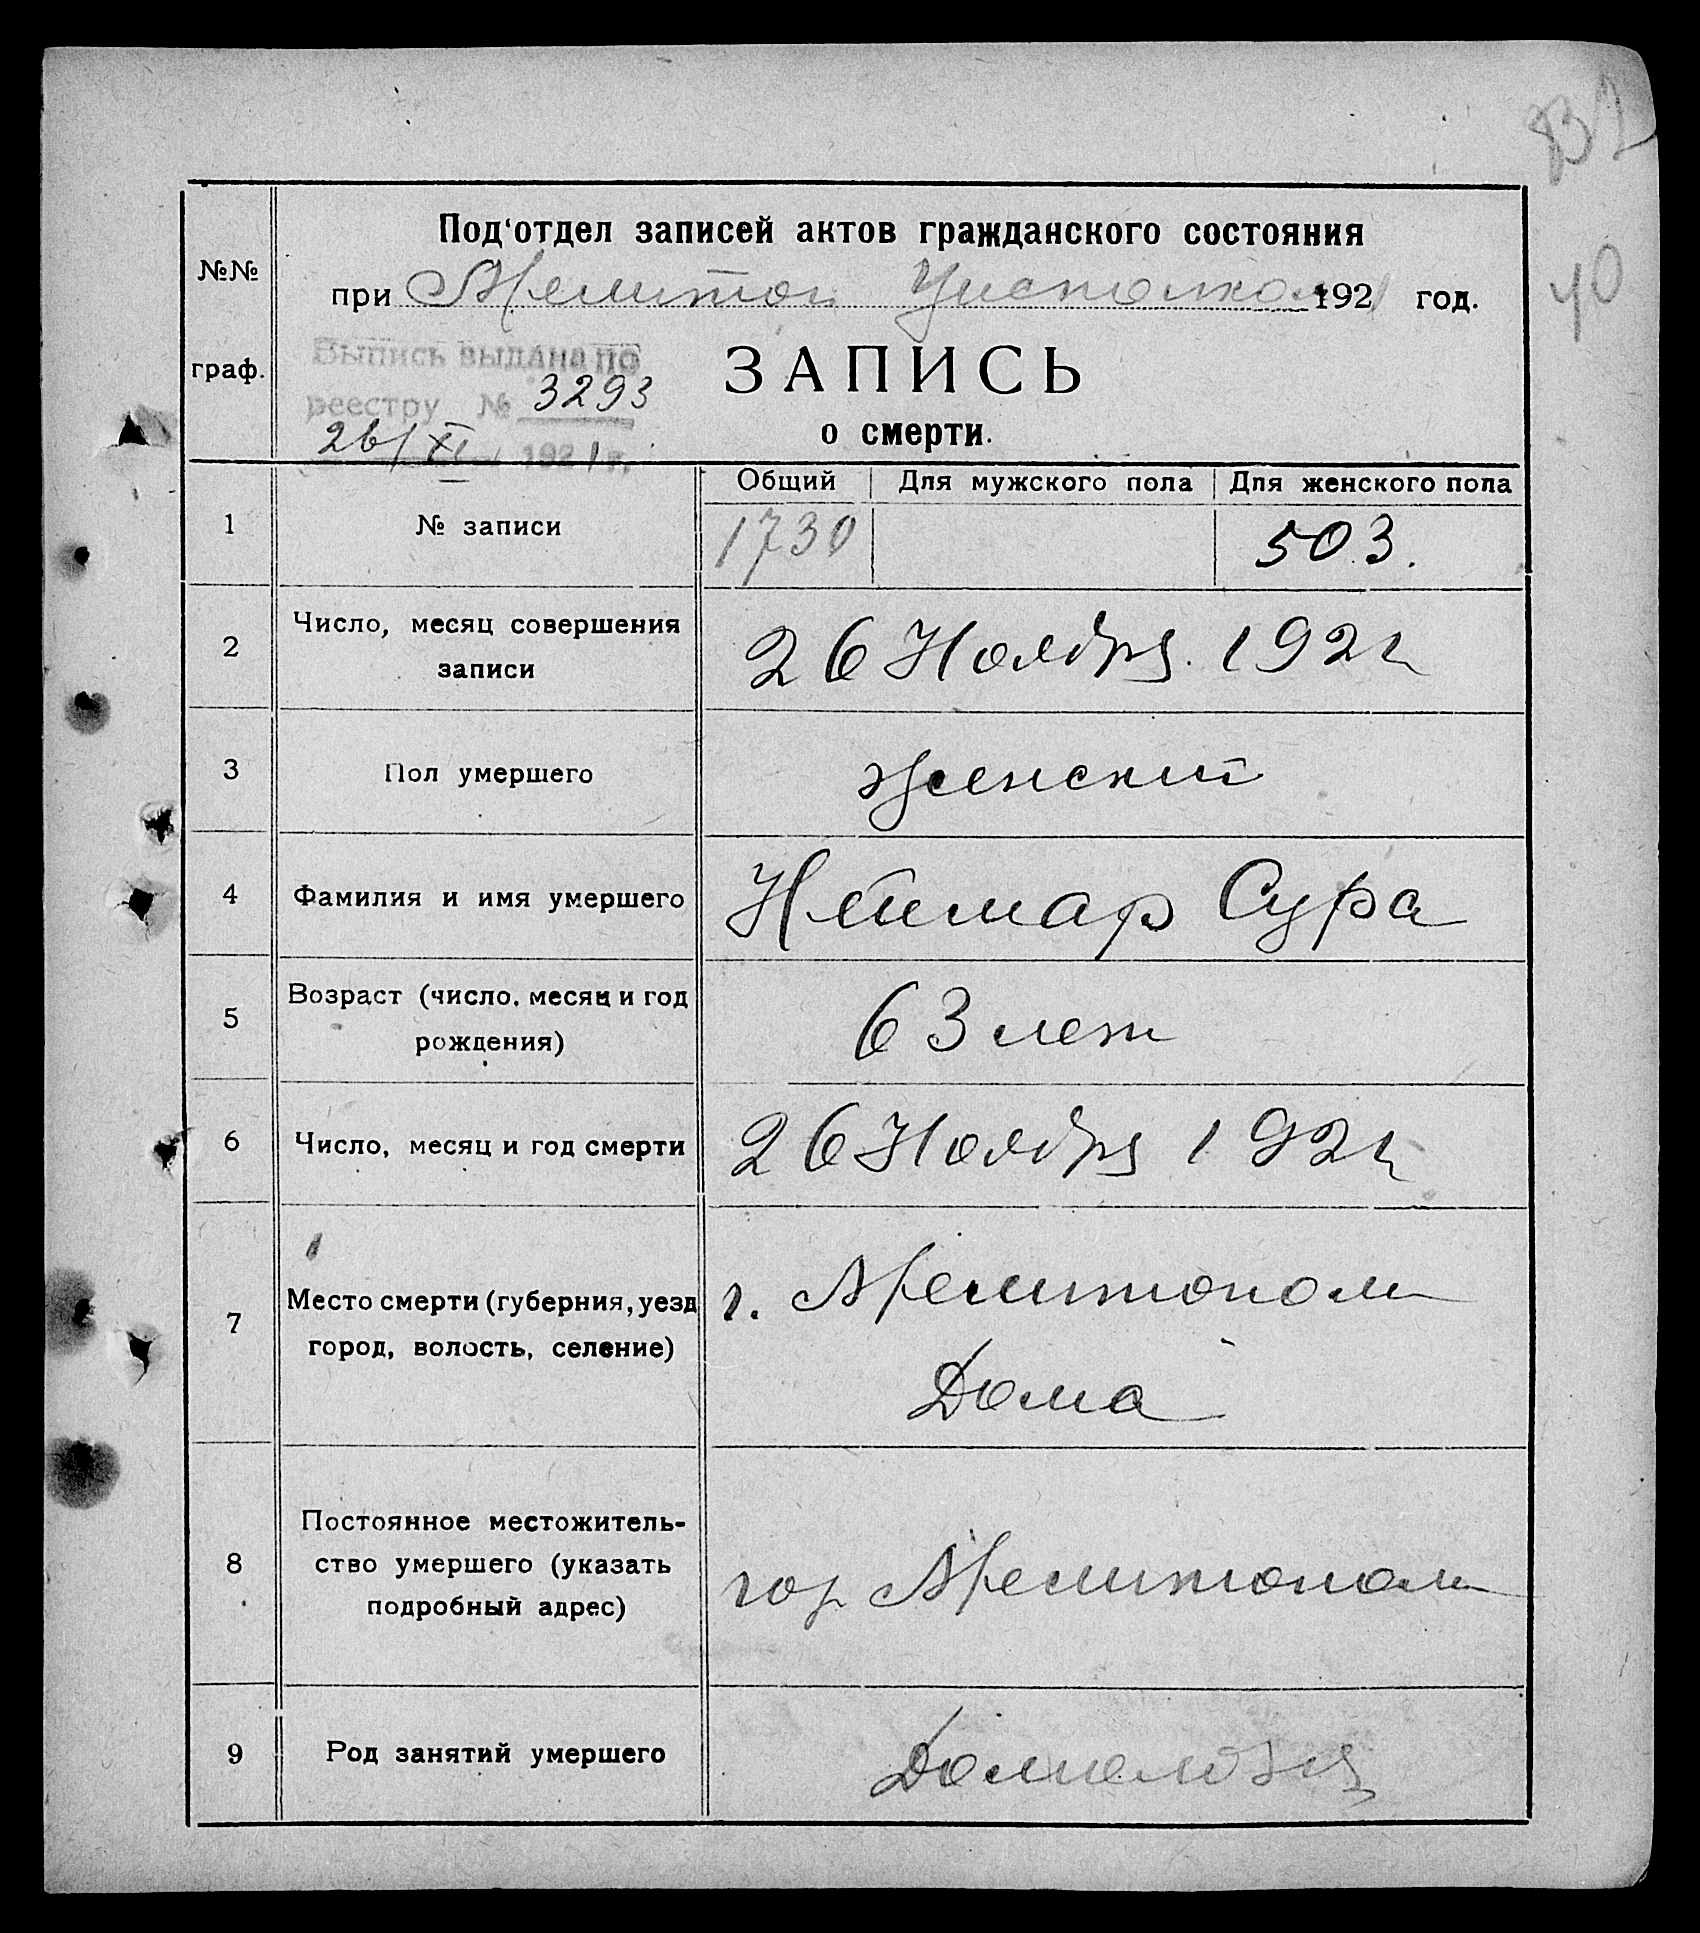 832
40
Под'отдел записей актов гражданского состояния
№№
при Мелитоп Уисполком 1921 год.
граф.
Выпись выдана по
реестру № 3293
26/XI 1921 г.
ЗАПИСЬ
о смерти.
Общий Для мужского пола Для женского пола
1 № записи 1730 503.
2 Число, месяц совершения
записи
26 Ноября 1921
3 Пол умершего женский
4 Фамилия и имя умершего Неймар Сура
5 Возраст (число, месяц и год
рождения)
63 лет
6 Число, месяц и год смерти 26 Ноября 1921
7 Место смерти (губерния, уезд
город, волость, селение)
г. Мелитополь
Дома
8 Постоянное местожитель-
ство умершего (указать
подробный адрес)
гор Мелитополь
9 Род занятий умершего